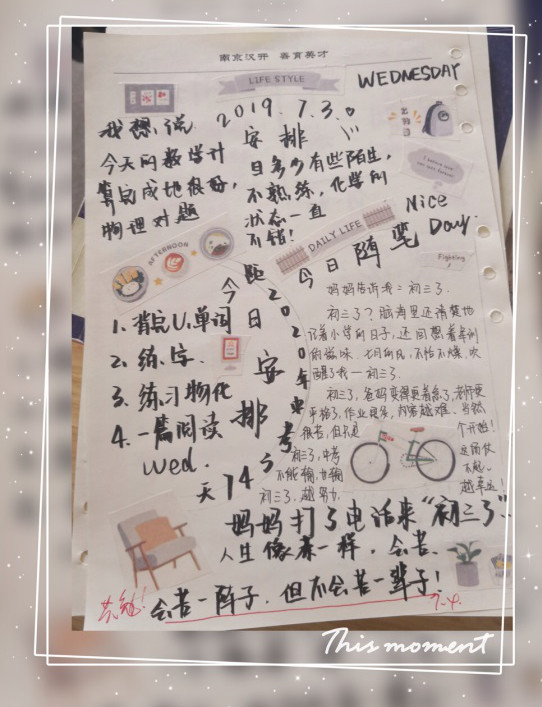 南京汉开 善育英才
LIFE STYLE
WEDNESDAY
2019.7.3.
我想说
今天的数学计
算完成地很好，
物理对题
安排
目多少有些陌生，
不熟练，化学的
状态一直
不错！
Nice
Day.
AFTERNOON
DAILY LIFE
Fighting!
今日随笔
今日安排
1. 背完U1单词
2. 练字.
3. 练习物化
4. 一篇阅读
wed.
距2020年中考
345天
妈妈告诉我：初三了.
初三了？脑海里还清楚地
记着小学的日子，还回想着
的滋味.七月的风，不怕不燥，吹
醒了我一初三了.
初三了，爸妈变得更着急了，老师更
严格了，作业更多，内容越难.当然
很苦，但只是个开始！
初三了，中考这场仗
不能输，
初三了，越努力，越幸运！
妈妈打了电话来“初三了”.
人生像茶一样，会苦、
会苦一阵子.但不会苦一辈子！
7.4.
This moment